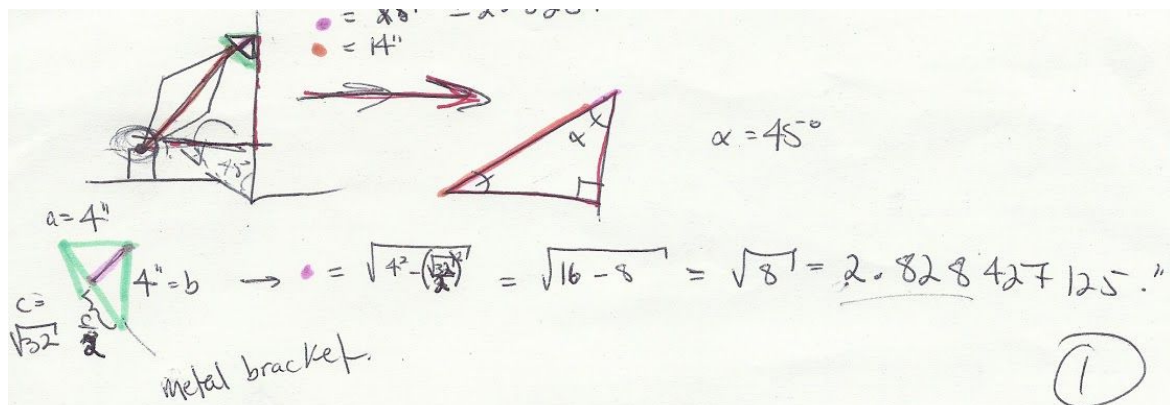 = 2.828"
= 14"
45°
α
α = 45°
a = 4"
4" = b → • = √(4² - (√32/2)²) = √(16 - 8) = √8 = 2.828427125."
c =
√32
c/2
metal bracket.
1